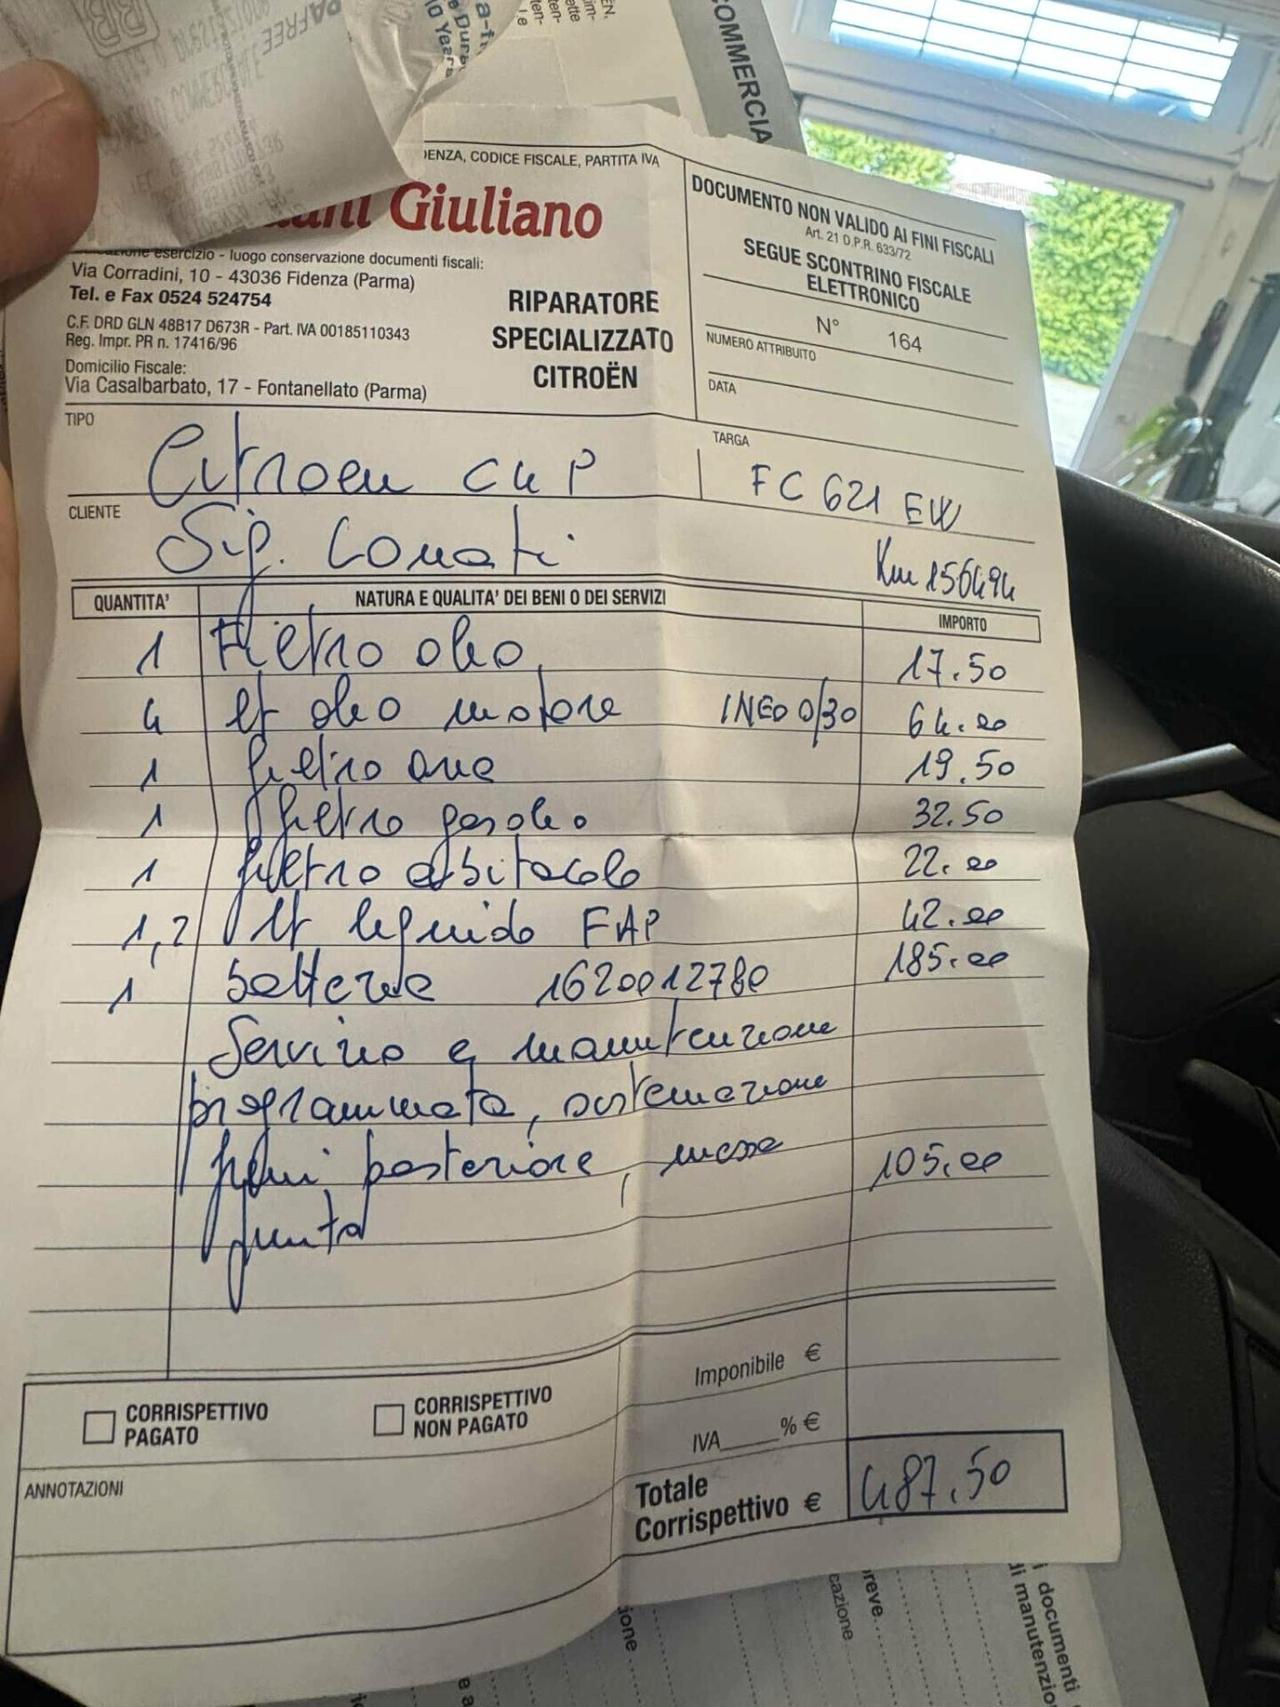 COMMERCIA
DENZA, CODICE FISCALE, PARTITA IVA
Giuliano
esercizio - luogo conservazione documenti fiscali:
Via Corradini, 10 - 43036 Fidenza (Parma)
Tel. e Fax 0524 524754
C.F. DRD GLN 48B17 D673R - Part. IVA 00185110343
Reg. Impr. PR n. 17416/96
Domicilio Fiscale:
Via Casalbarbato, 17 - Fontanellato (Parma)
RIPARATORE
SPECIALIZZATO
CITROËN
DOCUMENTO NON VALIDO AI FINI FISCALI
Art. 21 D.P.R. 633/72
SEGUE SCONTRINO FISCALE
ELETTRONICO
N° 164
NUMERO ATTRIBUITO
DATA
TIPO Citroen
TARGA FC 621 EW
CLIENTE Sig.
Km 156494
QUANTITA' NATURA E QUALITA' DEI BENI O DEI SERVIZI IMPORTO
1 Filtro olio 17.50
4 lt olio motore INEO 0/30 64.00
1 filtro aria 19.50
1 filtro gasolio 32.50
1 filtro abitacolo 22.00
1,2 lt liquido FAP 42.00
1 batteria 1620012780 185.00
Servizio e manutenzione
programmata, sistemazione
freni posteriore, messa 105.00
punto
Imponibile €
CORRISPETTIVO PAGATO
CORRISPETTIVO NON PAGATO
IVA____% €
ANNOTAZIONI
Totale
Corrispettivo € 487.50